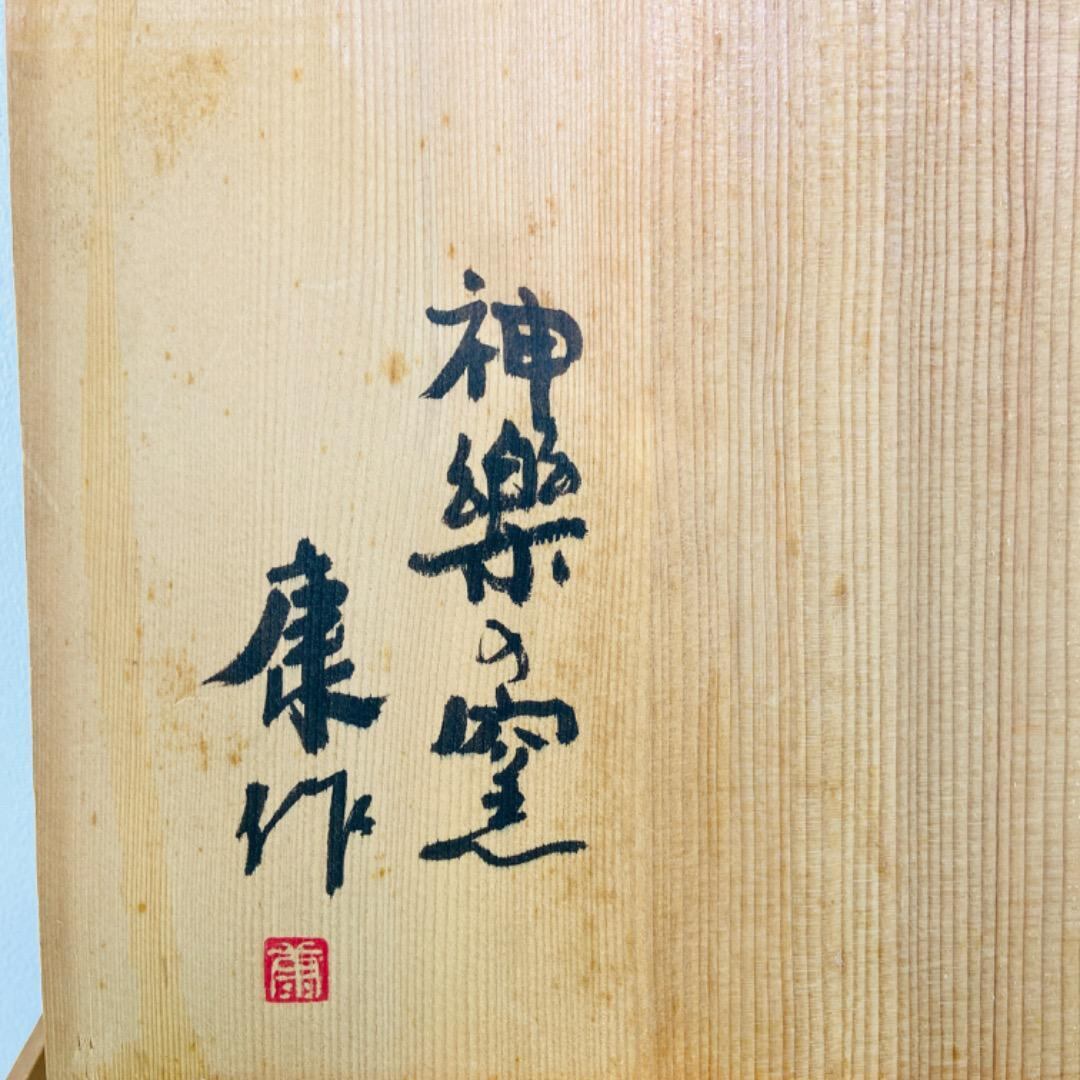 神樂の窯
康作